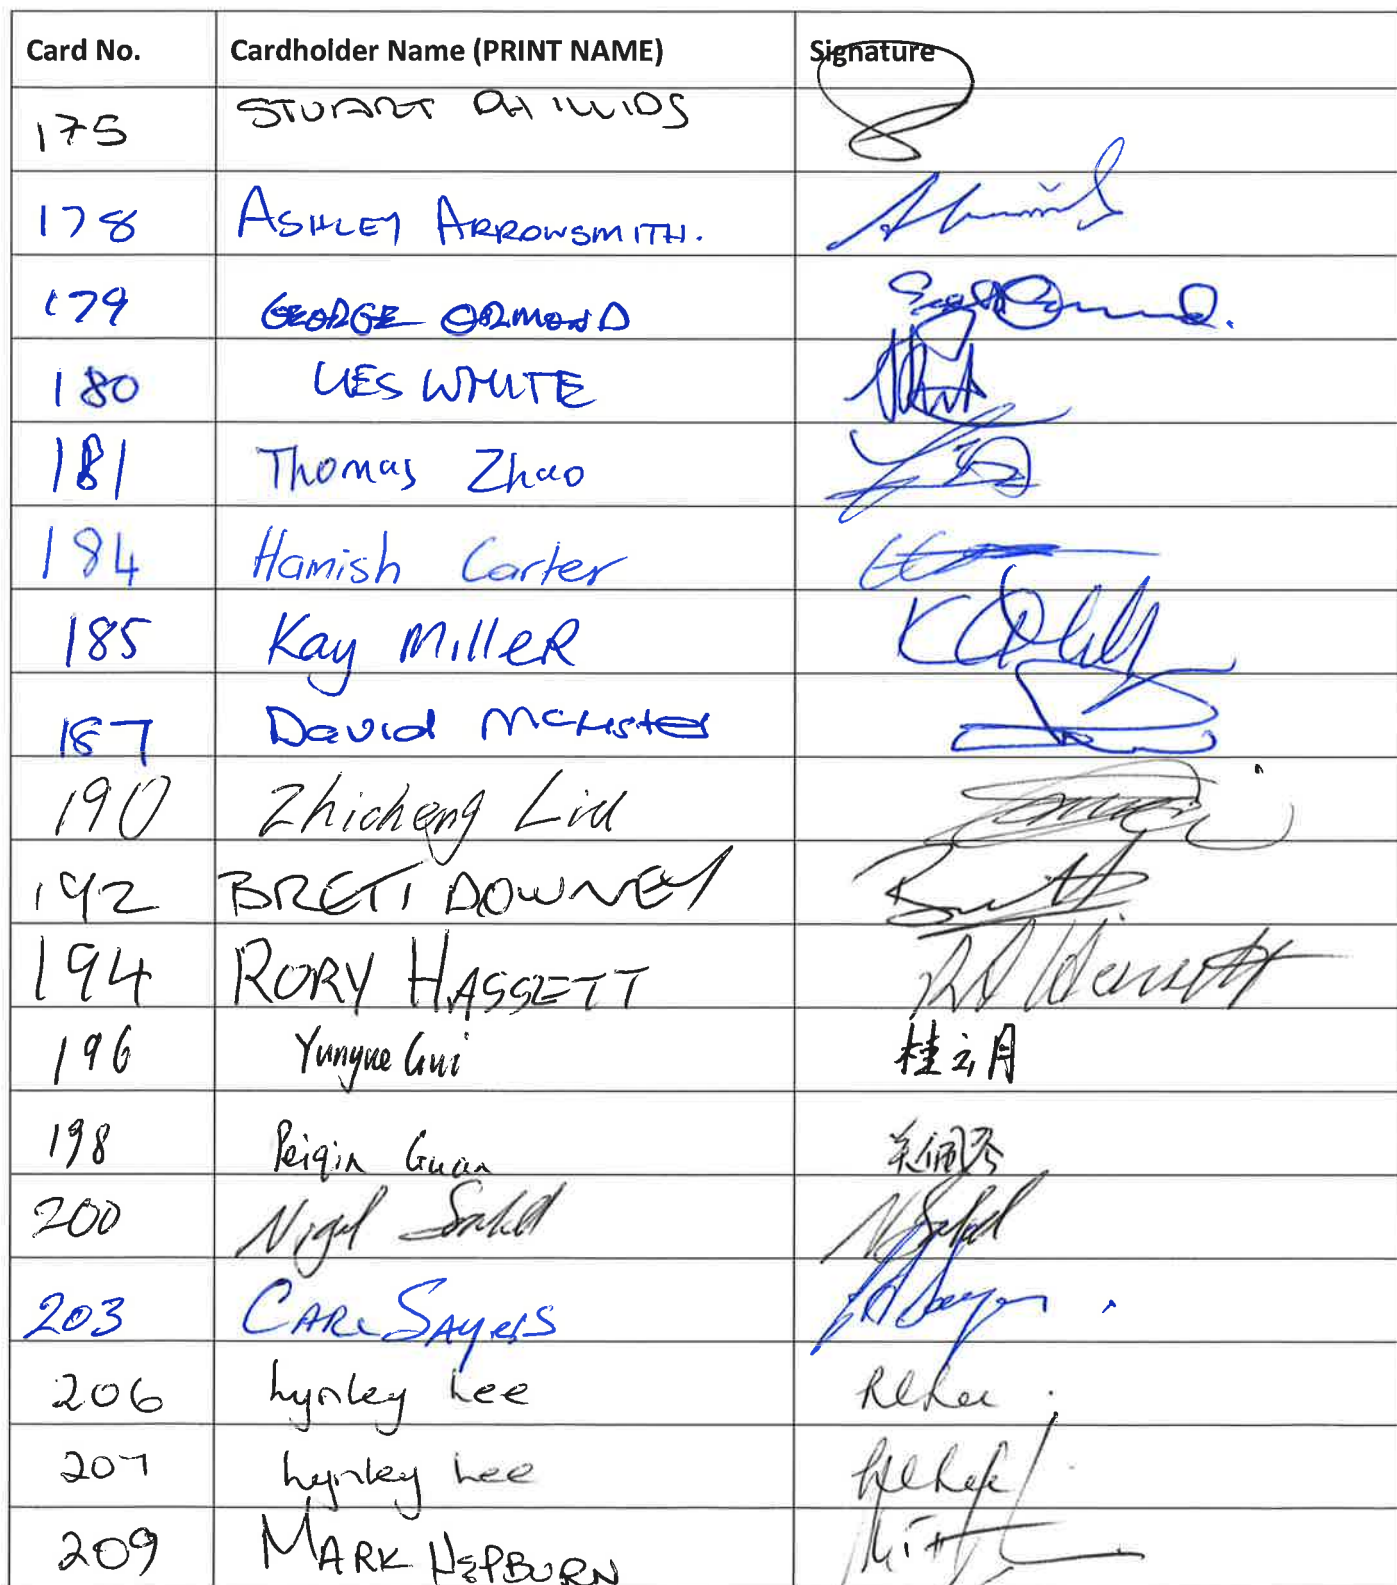 Card No. Cardholder Name (PRINT NAME) Signature
175 STUART PHILLIPS
178 ASHLEY ARROWSMITH.
179 GEORGE ORMOND
180 WES WHITE
181 Thomas Zhao
184 Hamish Carter
185 Kay MilleR
187 David McLister
190 Zhicheng Liu
192 BRETT DOWNEY
194 RORY HASSETT
196 Yunyue Gui 桂云月
198 Peiqin Guan 关佩琴
200 Nigel
203 CARL SAyers
206 Lynley Lee
207 Lynley Lee
209 MARK HEPBURN